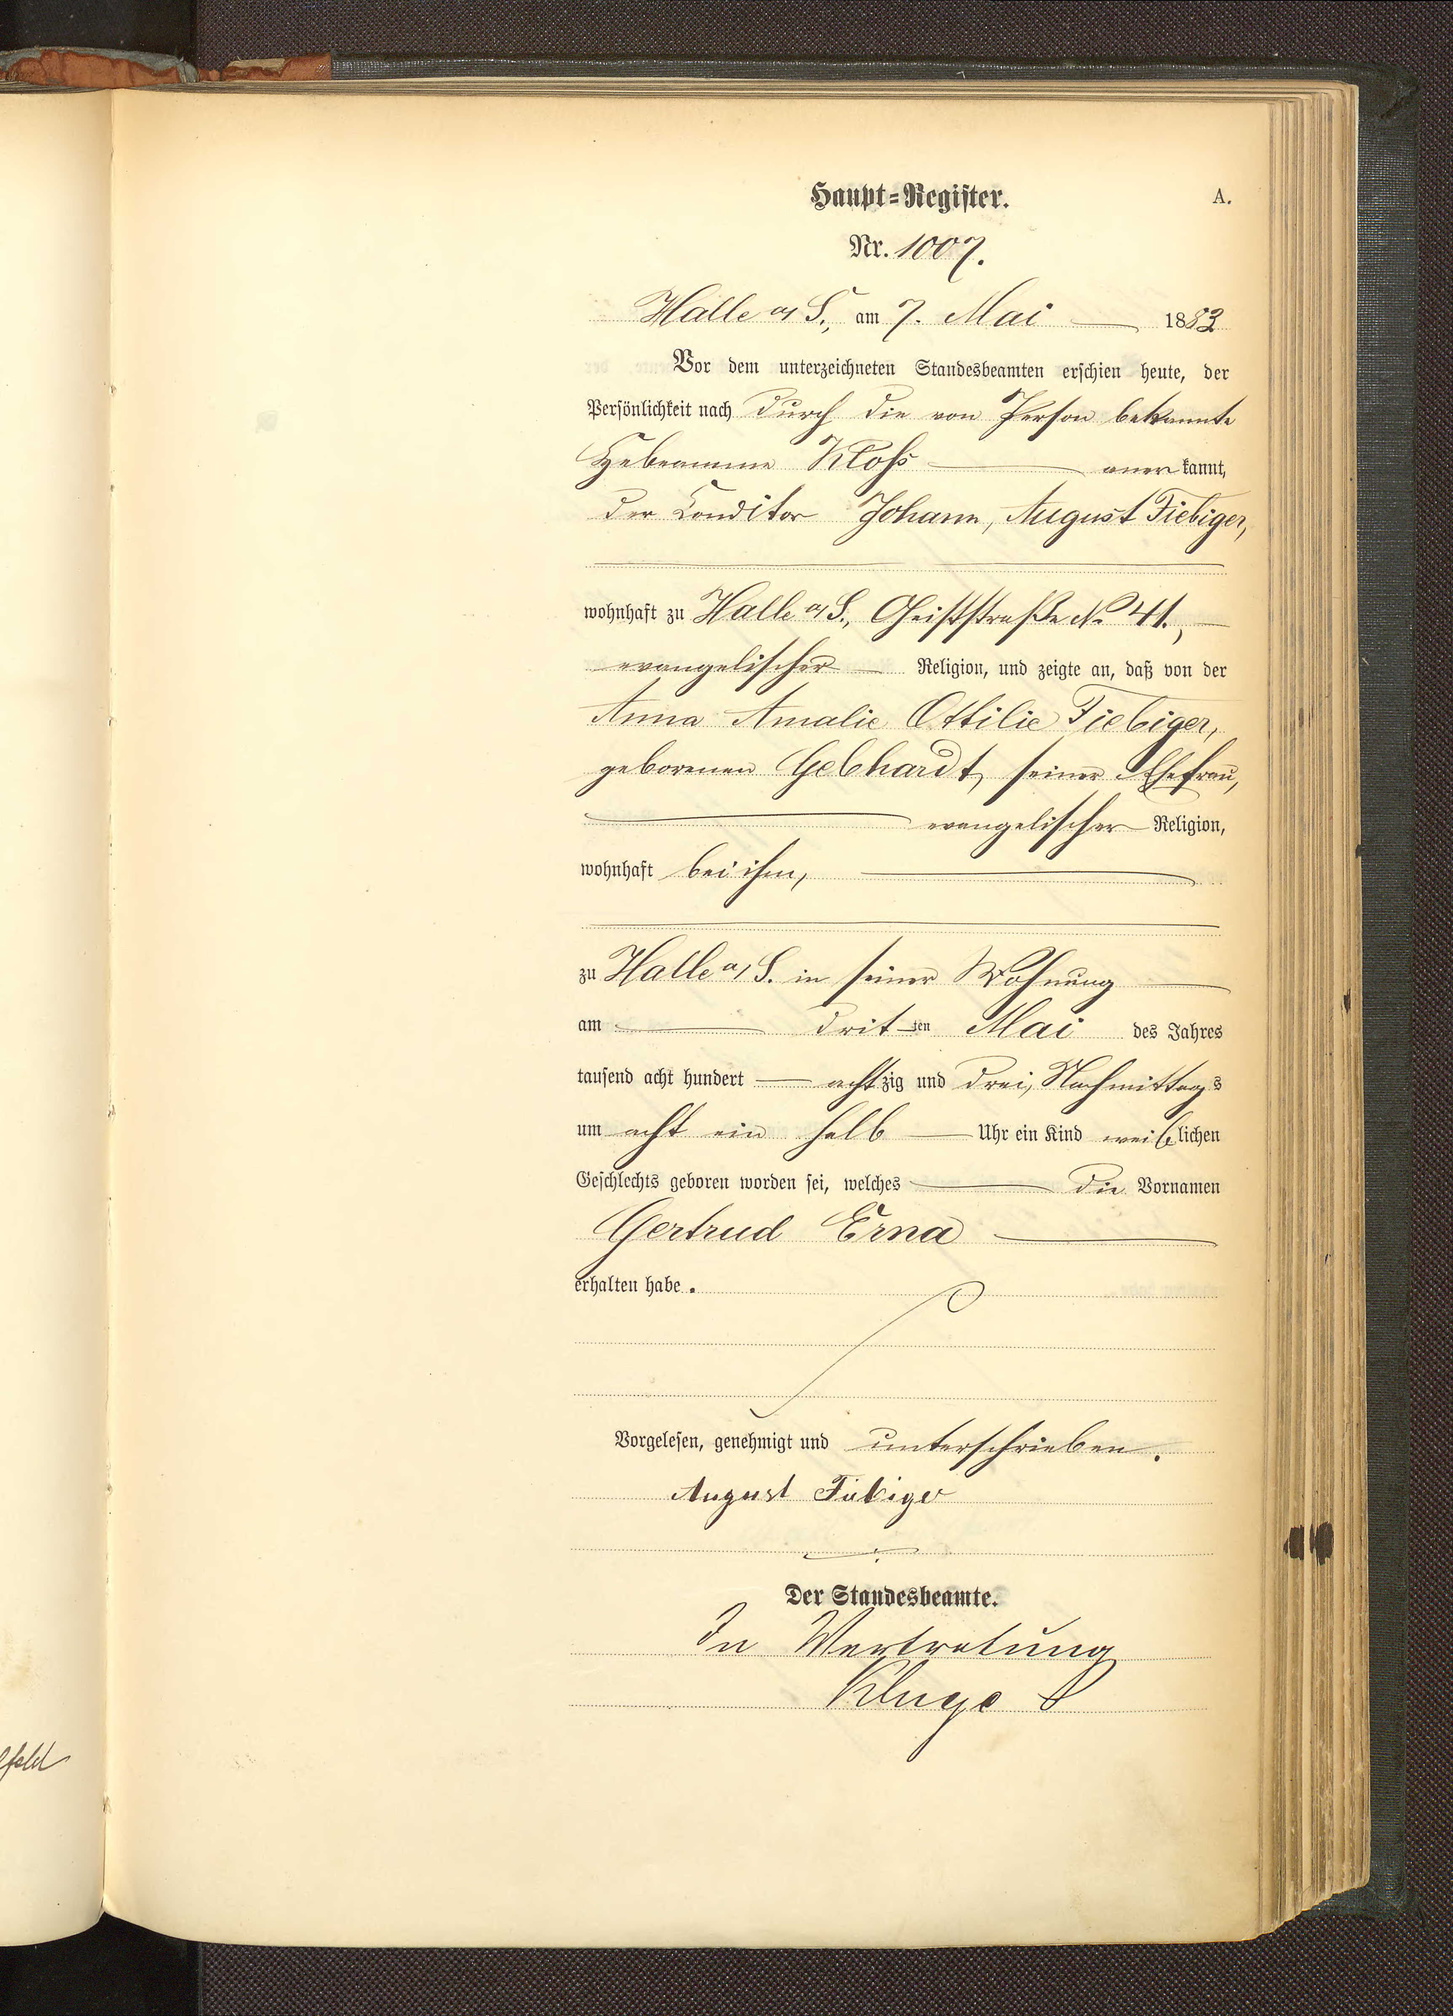 Haupt=Register.
A.
Nr. 1007.
Halle a/S., am 7. Mai 1883
Vor dem unterzeichneten Standesbeamten erschien heute, der
Persönlichkeit nach durch die von Person bekannte
Hebeamme Kloß anerkannt,
der Conditor Johann, August Fiebiger,
wohnhaft zu Halle a/S., Geiststraße No 41.,
evangelischer Religion, und zeigte an, daß von der
Anna Amalie Ottilie Fiebiger,
geborenen Gebhardt, seiner Ehefrau,
evangelischer Religion,
wohnhaft bei ihm,
zu Halle a/S. in seiner Wohnung
am dritten Mai des Jahres
tausend acht hundert achtzig und drei, Nachmittags
um acht ein halb Uhr ein Kind weiblichen
Geschlechts geboren worden sei, welches die Vornamen
Gertrud Erna
erhalten habe.
Vorgelesen, genehmigt und unterschrieben.
August Fiebiger
Der Standesbeamte.
In Vertretung
Kluge
feld